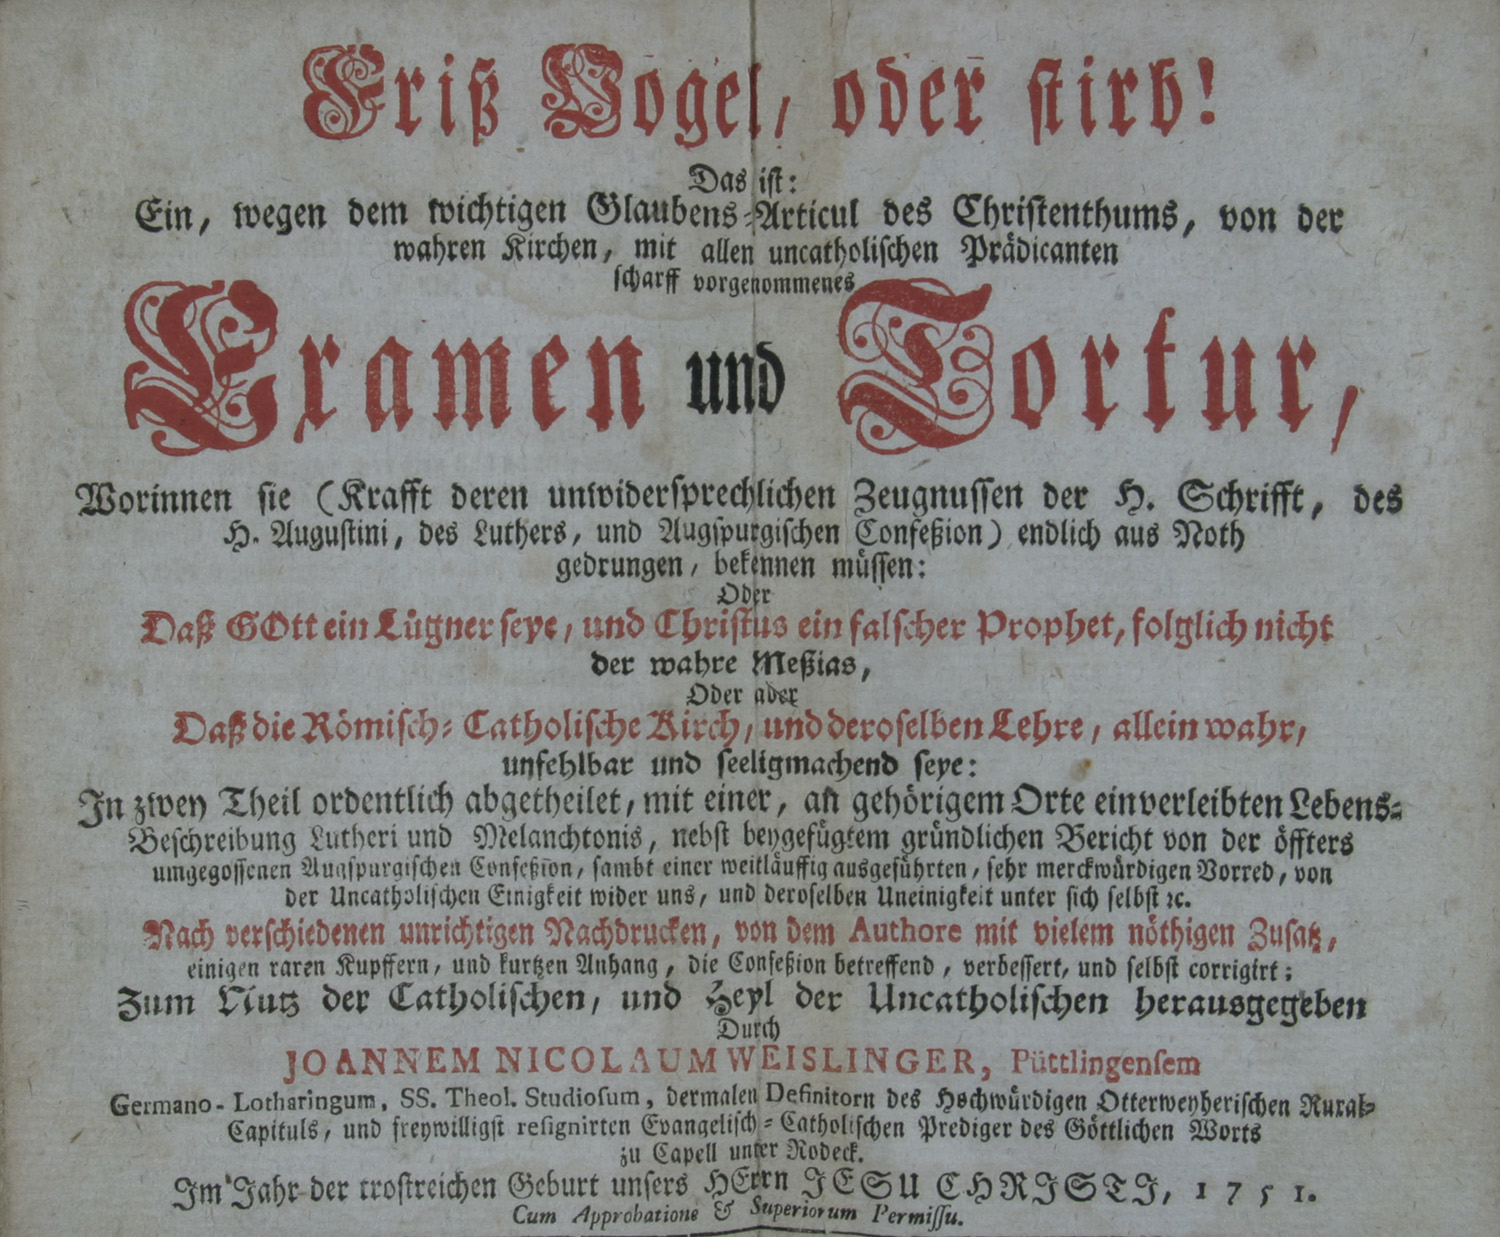 Friß Vogel, oder stirb!
Das ist:
Ein, wegen dem wichtigen Glaubens-Articul des Christenthums, von der
wahren Kirchen, mit allen uncatholischen Prädicanten
scharff vorgenommenes
Examen und Tortur,
Worinnen sie (Krafft deren unwidersprechlichen Zeugnussen der H. Schrifft, des
H. Augustini, des Luthers, und Augspurgischen Confeßion) endlich aus Noth
gedrungen, bekennen müssen:
Oder
Daß GOtt ein Lügner seye, und Christus ein falscher Prophet, folglich nicht
der wahre Meßias,
Oder aber
Daß die Römisch-Catholische Kirch, und deroselben Lehre, allein wahr,
unfehlbar und seeligmachend seye:
In zwey Theil ordentlich abgetheilet, mit einer, an gehörigem Orte einverleibten Lebens-
Beschreibung Lutheri und Melanchtonis, nebst beygefügtem gründlichen Bericht von der öffters
umgegossenen Augspurgischen Confeßion, sambt einer weitläuffig ausgeführten, sehr merckwürdigen Vorred, von
der Uncatholischen Einigkeit wider uns, und deroselben Uneinigkeit unter sich selbst ꝛc.
Nach verschiedenen unrichtigen Nachdrucken, von dem Authore mit vielem nöthigen Zusatz,
einigen raren Kupffern, und kurtzen Anhang, die Confeßion betreffend, verbessert, und selbst corrigirt;
Zum Nutz der Catholischen, und Heyl der Uncatholischen herausgegeben
Durch
JOANNEM NICOLAUM WEISLINGER, Püttlingensem
Germano-Lotharingum, SS. Theol. Studiosum, dermalen Definitorn des Hochwürdigen Otterweyherischen Rural-
Capituls, und freywilligst resignirten Evangelisch-Catholischen Prediger des Göttlichen Worts
zu Capell unter Rodeck.
Im Jahr der trostreichen Geburt unsers HErrn JESU CHRISTI, 1751.
Cum Approbatione & Superiorum Permissu.